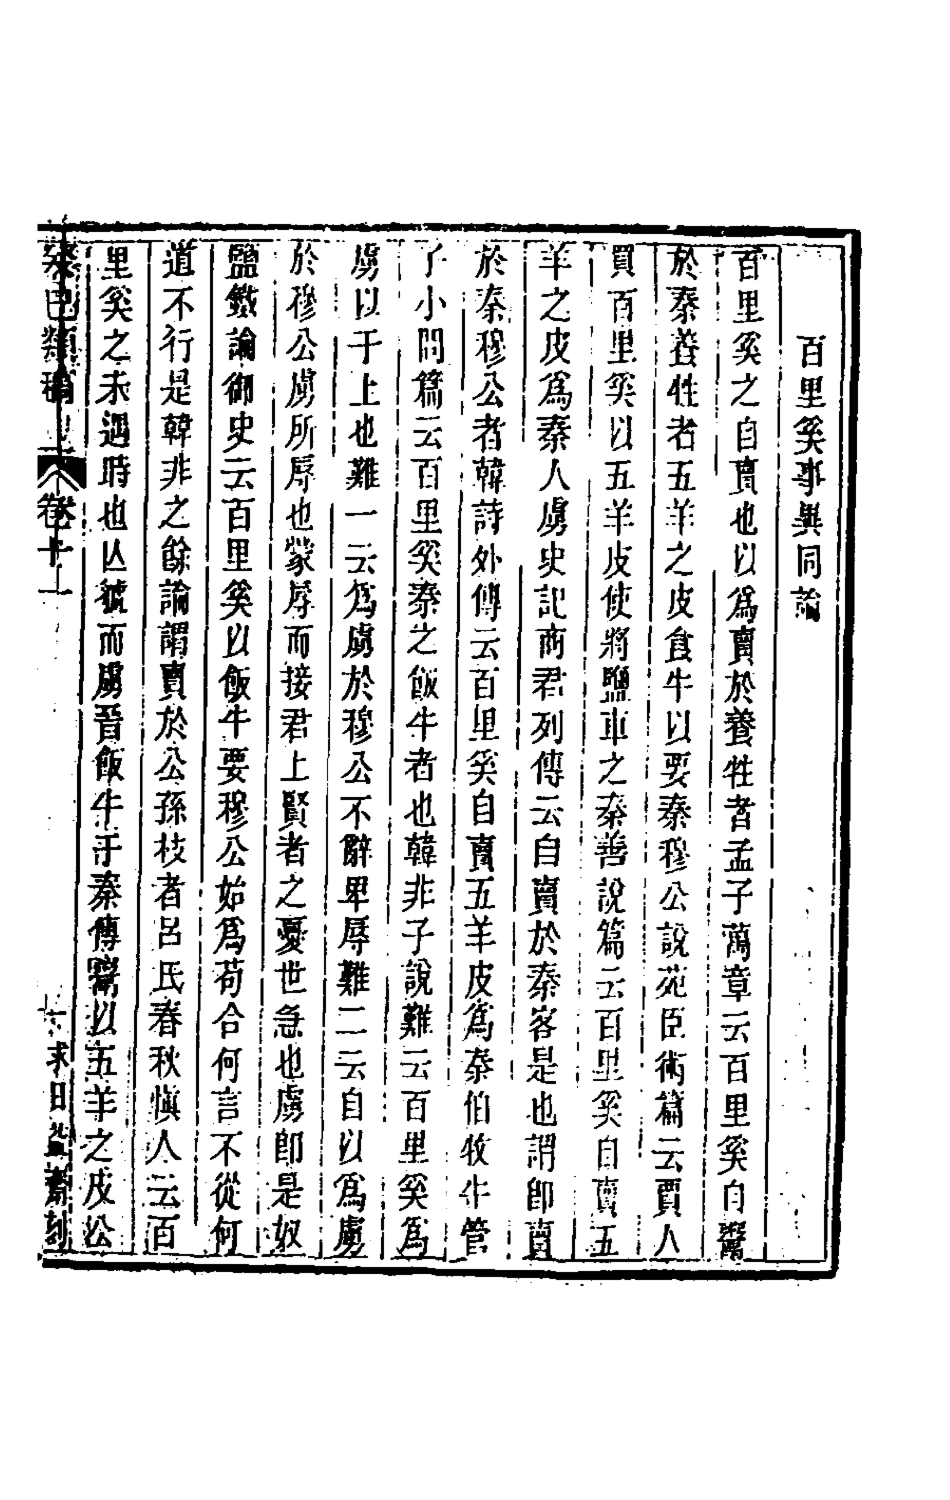 百里奚事異同論
百里奚之自賣也以爲賣於養牲者孟子萬章云百里奚自鬻
於秦養牲者五羊之皮食牛以要秦穆公說苑臣術篇云賈人
買百里奚以五羊皮使將鹽車之秦善說篇云百里奚自賣五
羊之皮爲秦人虜史記商君列傳云自賣於秦客是也謂卽賣
於秦穆公者韓詩外傳云百里奚自賣五羊皮爲秦伯牧牛管
子小問篇云百里奚秦之飯牛者也韓非子說難云百里奚爲
虜以于上也難一云爲虜於穆公不辭卑辱難二云自以爲虜
於穆公虜所辱也蒙辱而接君上賢者之憂世急也虜卽是奴
鹽鐵論御史云百里奚以飯牛要穆公始爲苟合何言不從何
道不行是韓非之餘論謂賣於公孫枝者呂氏春秋愼人云百
里奚之未遇時也亾虢而虜晉飯牛于秦傳鬻以五羊之皮公
癸巳類稿 卷十一 求日益齋刻